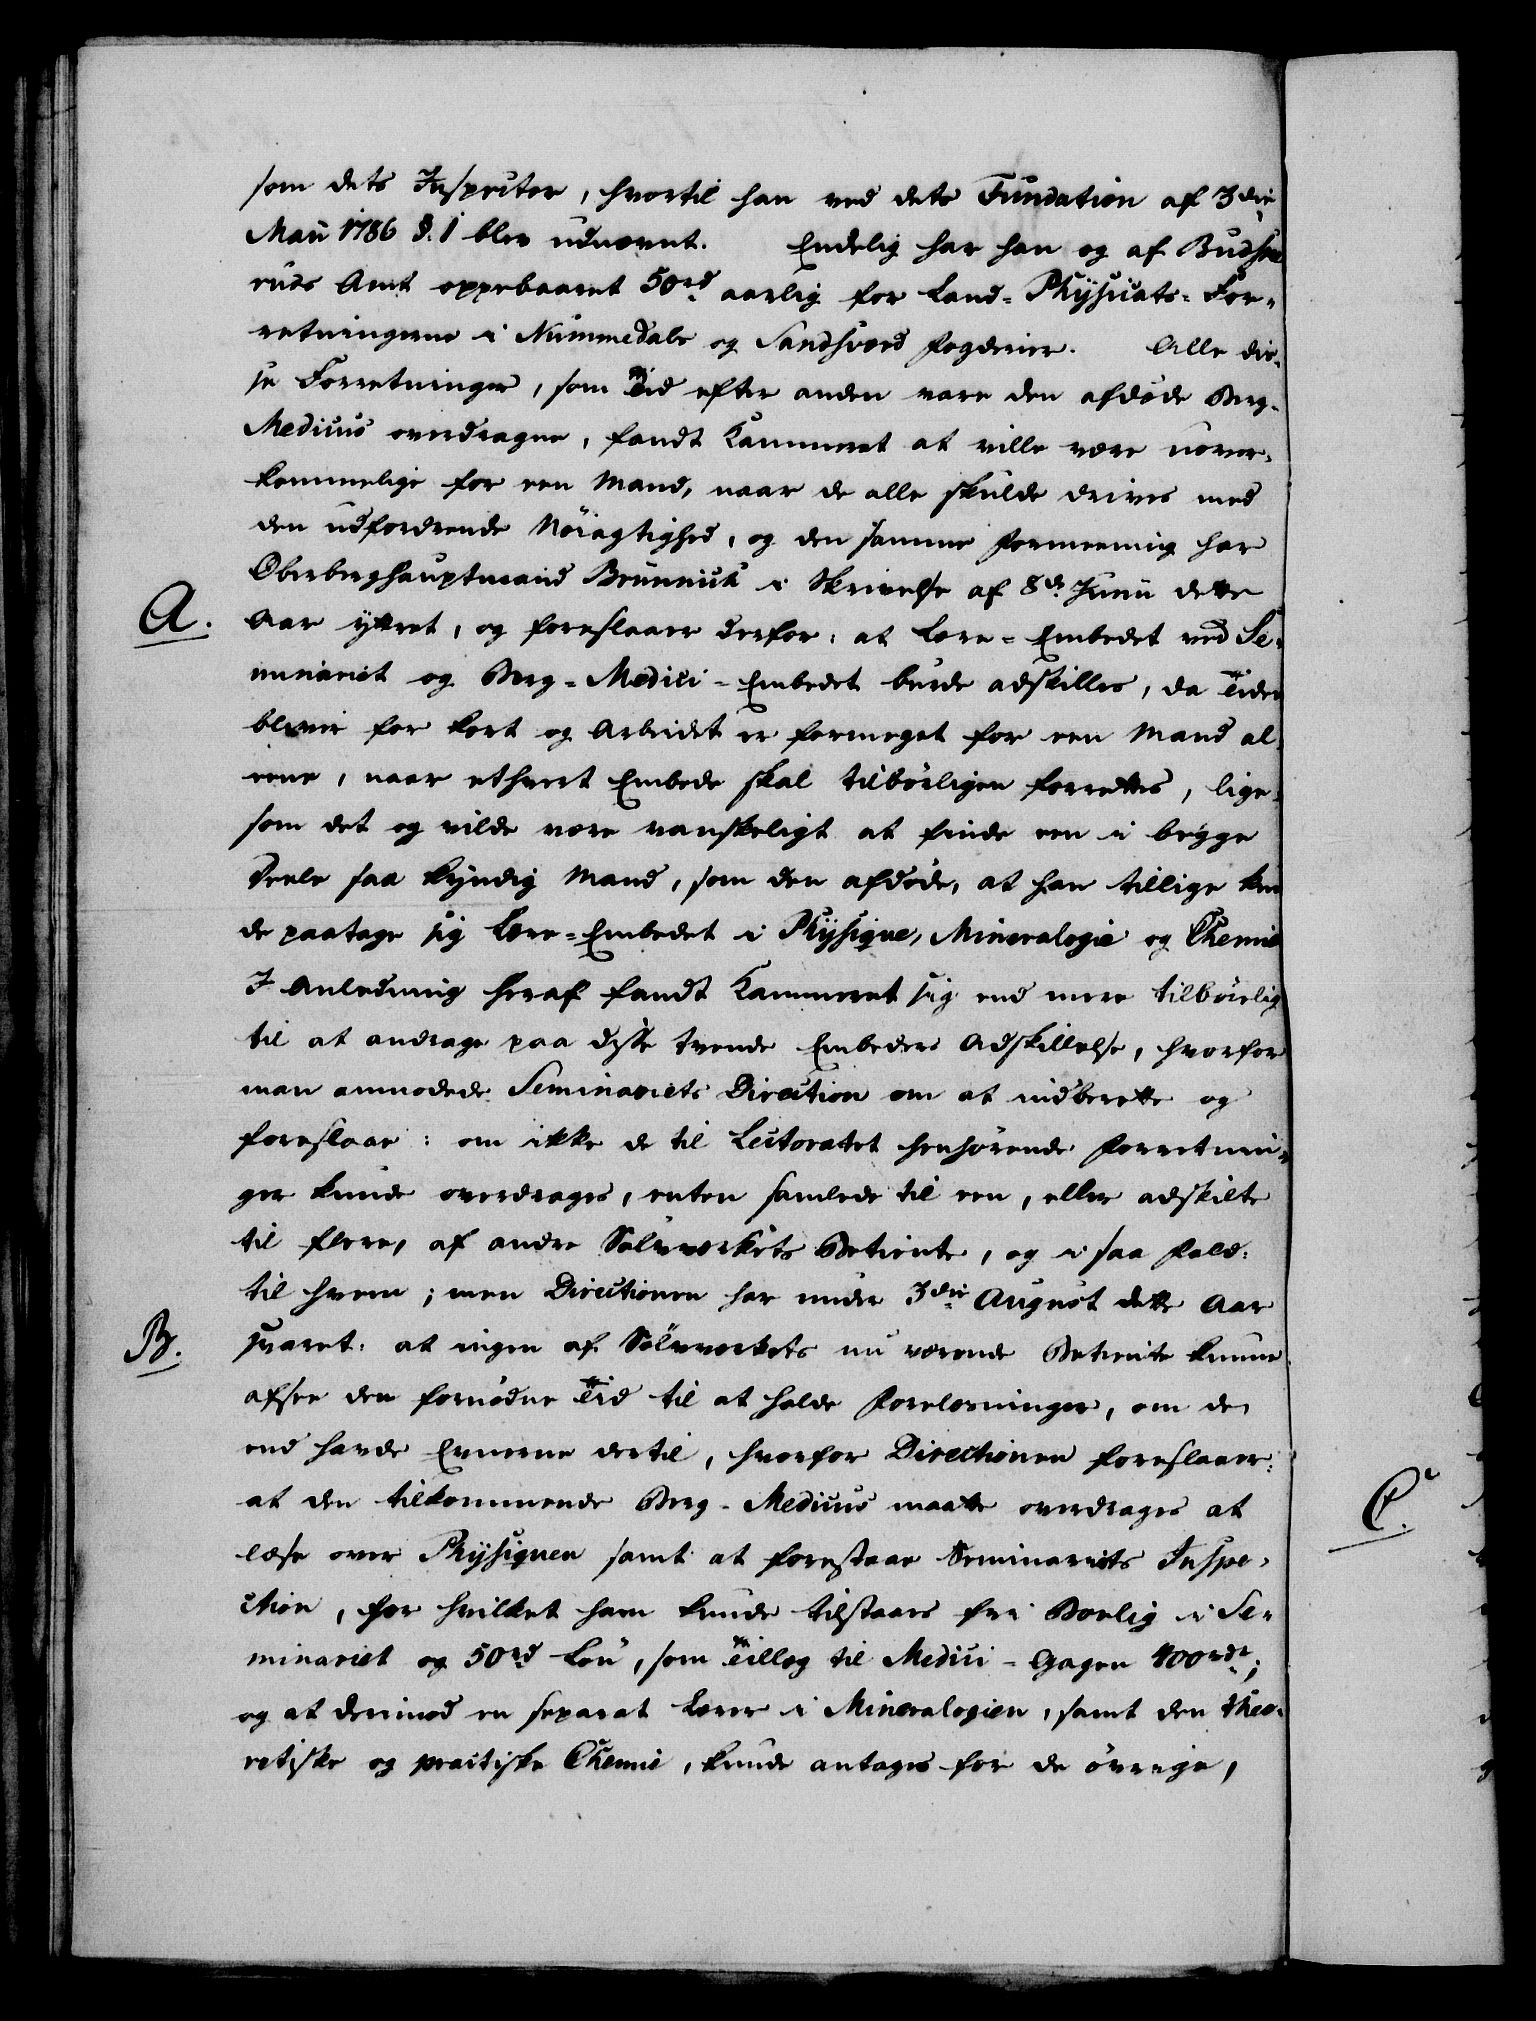 som dets Inspector, hvortil han ved dets Fundation af 3die
Maii 1786 §. 1 blev udnævnt. Endelig har han og af Budske
ruds Amt oppebaaret 50rd aarlig for Land-Physicats-For-
retningerne i Nummedals og Sandsværd Fogderier. Alle dis-
se Forretninger, som Tid efter anden vare den afdøde Berg-
Medicus overdragne, fandt Kammeret at ville være uover-
kommelige for een Mand, naar de alle skulde drives med
den udfordrende Nöiagtighed, og den samme Formeening har
Oberberghauptmand Brünnich i Skrivelse af 8de Junii dette
A.
Aar yttret, og foreslaaer derfor: at Lære-Embedet ved Se-
minariet og Berg-Medici-Embedet burde adskilles, da Tiden
blever for kort og Arbeidet er formeget for een Mand al-
eene, naar ethvert Embede skal tilbörligen forrettes, lige-
som det og vilde være vanskeligt at finde een i begge
Deele saa kyndig Mand, som den afdøde, at han tillige kun
de paatage sig Lære-Embedet i Physique, Mineralogie og Chemie
I Anledning heraf fandt Kammeret sig end mere tilbörlig
til at andrage paa disse tvende Embeders Adskillelse, hvorfor
man anmodede Seminariets Direction om at indberette og
foreslaae: om ikke de til Lectoratet henhørende Forretnin-
ger kunde overdrages, enten samlede til een, eller adskilte
til flere, af andre Sölvværkets Betiente, og i saa Fald:
til hvem; men Directionen har under 3die August dette Aar
B.
svaret: at ingen af Sölvværkets nu værende Betiente kunne
afsee den fornødne Tid til at holde Forelæsninger, om de
end havde Evnerne dertil, hvorfor Directionen foreslaaer:
at den tilkommende Berg-Medicus maatte overdrages at
læse over Physiquen samt at forestaae Seminariets Inspe-
C.
ction, for hvilket ham kunde tilstaaes frie Boelig i Se-
minariet og 50rd Lön, som Tillæg til Medici-Gagen 400rdr;
og at derimod en separat Lærer i Mineralogien, samt den theo-
retiske og practiske Chemie, kunde antages for de övrige,